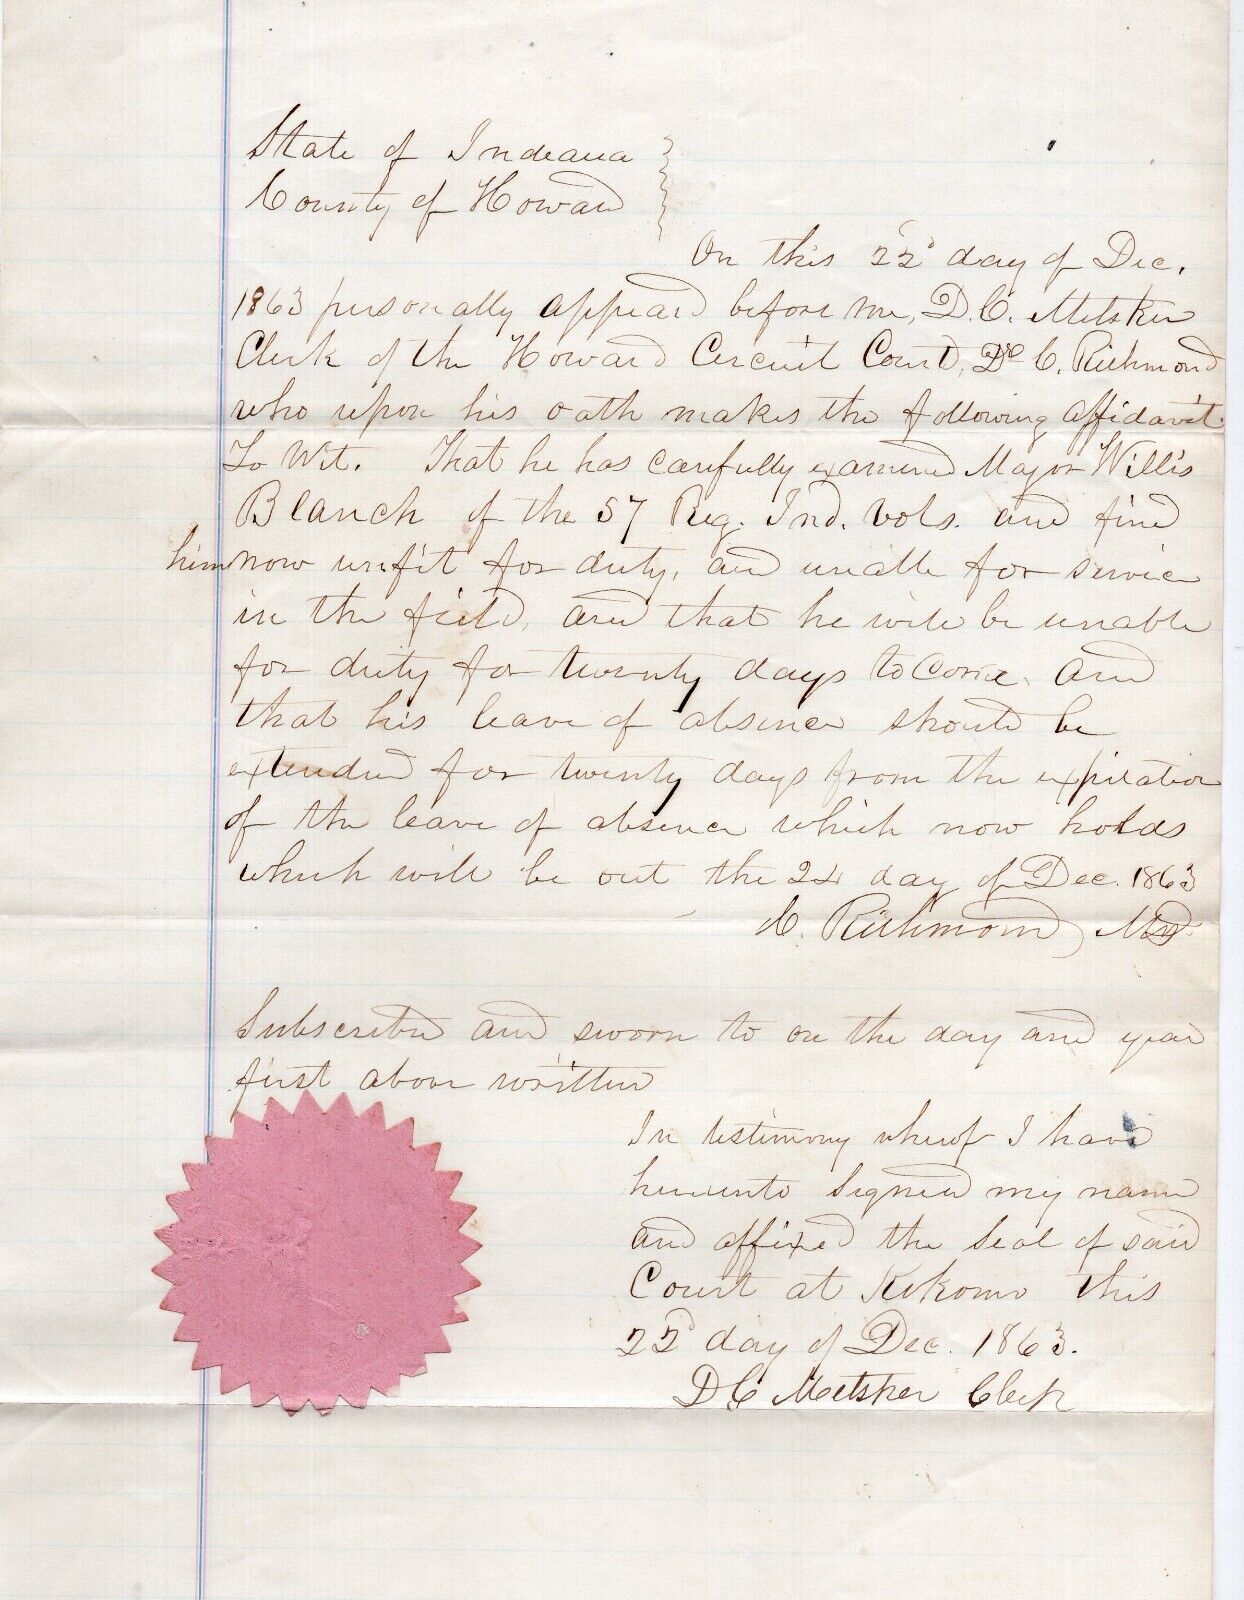 State of Indiana
County of Howard
On this 22d day of Dec.
1863 personally appeard before me, D. C. Metsker
Clerk of the Howard Circuit Court, Dr C. Richmond
who upon his oath makes the following affidavit
To Wit. That he has carefully examined Major Willis
Blanch of the 57 Reg. Ind. Vols. and find
him now unfit for duty, and unable for service
in the field, and that he will be unable
for duty for twenty days to come. And
that his leave of absence should be
extended for twenty days from the expiration
of the leave of absence which now holds
which will be out the 24 day of Dec. 1863
C. Richmond MD.
Subscribed and sworn to on the day and year
first above written
In testimony whereof I have
hereunto signed my name
and affixed the Seal of said
Court at Kokomo this
22d day of Dec. 1863.
D C Metsker Clerk